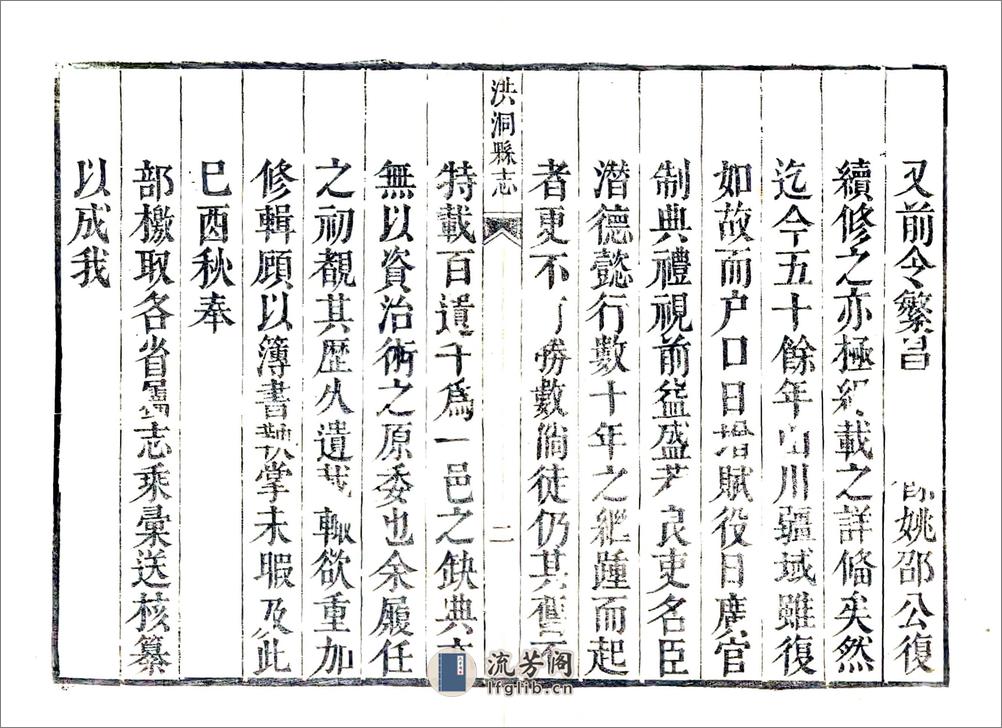 又前令繁昌姚邵公復
續修之亦極紀載之詳備矣然
迄今五十餘年山川疆域雖復
如故而户口日增賦役日廣官
制典禮視前益盛若良吏名臣
潛德懿行數十年之繼踵而起
者更不可勝數倘徒仍其舊不
洪洞縣志
二
特載百遺千爲一邑之缺典亦
無以資治術之原委也余履任
之初覩其歷久遺輒欲重加
修輯顧以簿書鞅掌未暇及此
己酉秋奉
部檄取各省屬志乘彙送核纂
以成我
流芳阁
lfglib.cn